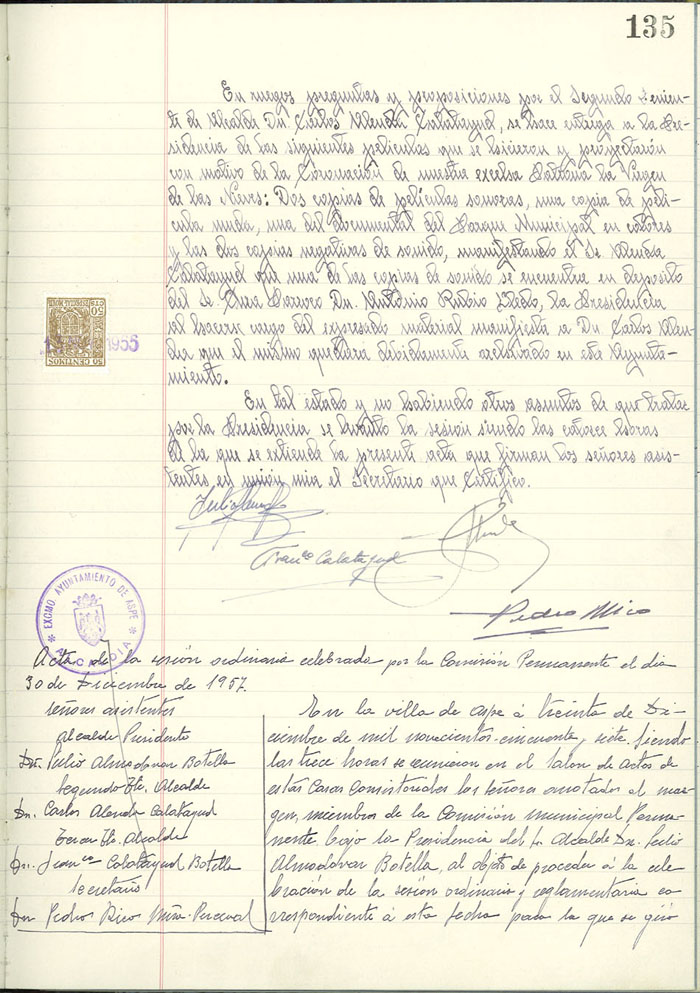 135
En ruegos preguntas y proposiciones por el Segundo Tenien-
te de Alcalde Dn. Carlos Alenda Calatayud, se hace entrega a la Pre-
sidencia de las siguientes peliculas que se hicieron y proyectaron
con motivo de la Coronación de nuestra excelsa Patrona la Virgen
de las Nieves: Dos copias de peliculas sonoras, una copia de pelí-
cula muda, una del documental del Parque Municipal en colores
y las dos copias negativas de sonido, manifestando el Sr. Alenda
Calatayud que una de las copias de sonido se encuentra en deposito
del Sr. Cura Parroco Dn. Antonio Rubio, la Presidencia
al hacerse cargo del expresado material manifiesta a Dn. Carlos Alen-
da que el mismo quedará debidamente archivado en este Ayunta-
miento.
En tal estado y no habiendo otros asuntos de que tratar
por la Presidencia se levantó la sesión siendo las catorce horas
de la que se extiende la presente acta que firman los señores asis-
tentes en unión mia el Secretario que Certifico.
Franco Calatayud
Pedro Mico
50 CENTIMOS
1955
EXCMO. AYUNTAMIENTO DE ASPE
ALCALDIA
Acta de la sesión ordinaria celebrada por la Comisión Permanente el dia
30 de Diciembre de 1957
Señores asistentes
Alcalde Presidente
Dn. Julio Almodovar Botella
Segundo Tte. Alcalde
Dn. Carlos Alenda Calatayud
Tercer Tte. Alcalde
Dn. Franco Calatayud Botella
Secretario
Dn Pedro Mico
En la villa de Aspe á treinta de Di-
ciembre de mil novecientos cincuenta y siete. Siendo
las trece horas se reunieron en el Salon de Actos de
estas Casas Consistoriales los señores anotados al mar-
gen, miembros de la Comisión municipal Perma-
nente, bajo la Presidencia del Sr. Alcalde Dn. Julio
Almodovar Botella, al objeto de proceder á la cele-
bración de la sesión ordinaria y reglamentaria co-
rrespondiente á esta fecha para la que se giró